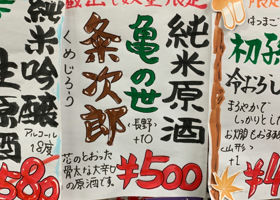 純米吟醸
生原酒
アルコール
18度
580
蔵出し数量限定
純米原酒
亀の世
粂次郎
くめじろう
<長野>
+10
花のとわった
骨太な大辛口
の原酒です。
¥500
限定
初
冷おろし
まろやかで
しっかりとした
お燗もおすすめ
<山形>
+1